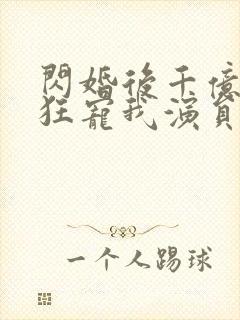 閃婚後千億
狂寵我演員
一个人踢球